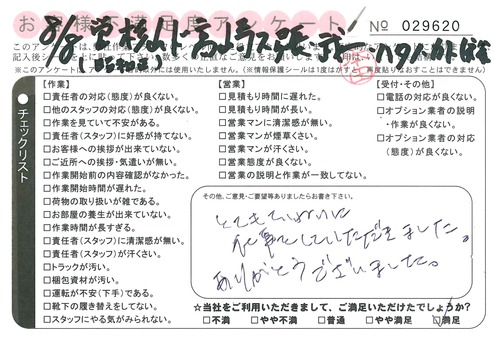 お客様不満足度アンケート
No 029620
このアンケートは、
※このアンケート
いたしません。(※情報保護シールは1度はがすと、再度貼りなおすことはできません)
チェックリスト
【作業】
□責任者の対応(態度)が良くない。
□他のスタッフの対応(態度)が良くない。
□作業を見ていて不安がある。
□責任者(スタッフ)に好感が持てない。
□お客様への挨拶が出来ていない。
□ご近所への挨拶・気遣いが無い。
□作業開始前の内容確認がなかった。
□作業開始時間が遅れた。
□荷物の取り扱いが雑である。
□お部屋の養生が出来ていない。
□作業時間が長すぎる。
□責任者(スタッフ)に清潔感が無い。
□責任者(スタッフ)が汗くさい。
□トラックが汚い。
□梱包資材が汚い。
□運転が不安(下手)である。
□靴下の履き替えをしてない。
□スタッフにやる気がみられない。
【営業】
□見積もり時間に遅れた。
□見積もり時間が長い。
□営業マンに清潔感が無い。
□営業マンが煙草くさい。
□営業マンが汗くさい。
□営業態度が良くない。
□営業の説明と作業が一致してない。
【受付・その他】
□電話の対応が良くない。
□オプション業者の説明
・作業が良くない。
□オプション業者の対応
(態度)が良くない。
その他、ご意見・ご要望等ありましたらお書き下さい。
とてもていねいに
仕事をしていただきました。
ありがとうございました。
☆当社をご利用いただきまして、ご満足いただけたでしょうか?
□不満 □やや不満 □普通 □やや満足 ☑満足